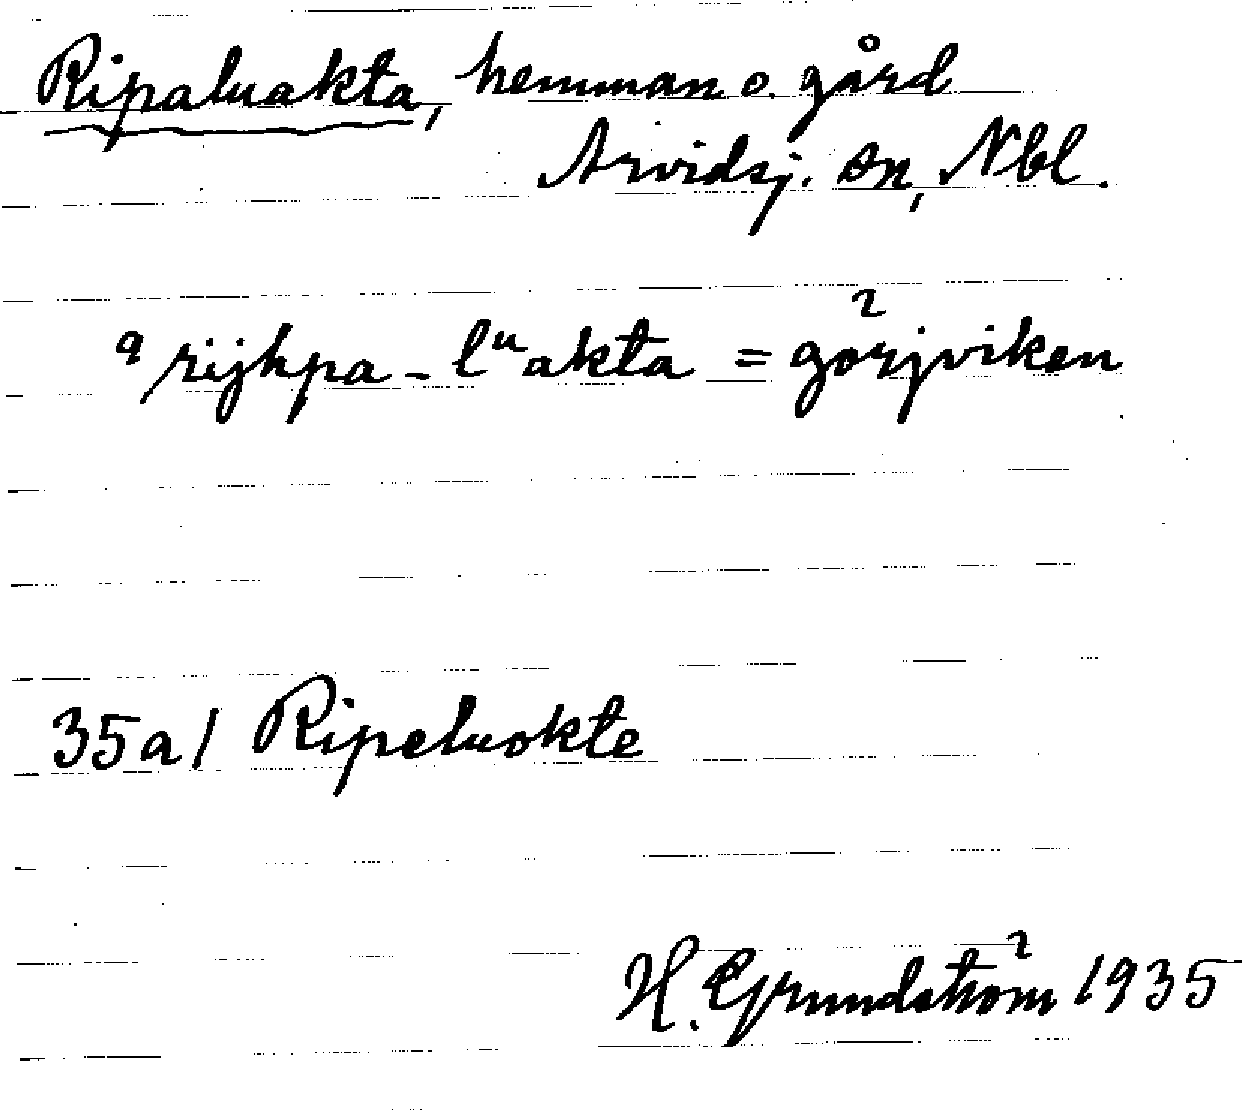 Ripaluakta, hemman o. gård
Arvidsj. sn, Nbl.
a rijhpa - lᵘakta = görjviken
35a/ Ripeluokte
H. Grundström 1935